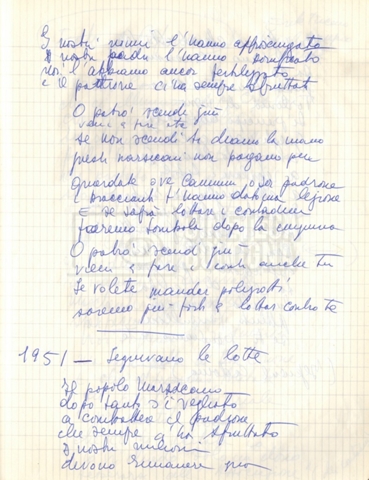 I nostri nonni l'hanno approsciugato
I nostri padri l'hanno
Noi l'abbiamo ancor
e il padrone ci ha sempre sfruttati
O patrò scendi giù
vieni a
se non scendi te diamo la mano
questi non pagano più
guardate ove cammini o sor padrone
i braccianti t'hanno dato una lezione
E se lottare i contadini
faremo tombola dopo la cinquina
O patrò scendi giù
vieni a fare i conti anche tu
Se volete mandar poliziotti
saremo più forti a lottar contro te
1951 – Seguivano le lotte
Il popolo Marsicano
dopo tanti s'è vegliato
a combattere il padrone
che sempre ci ha sfruttato
I nostri milioni
devono rimanere